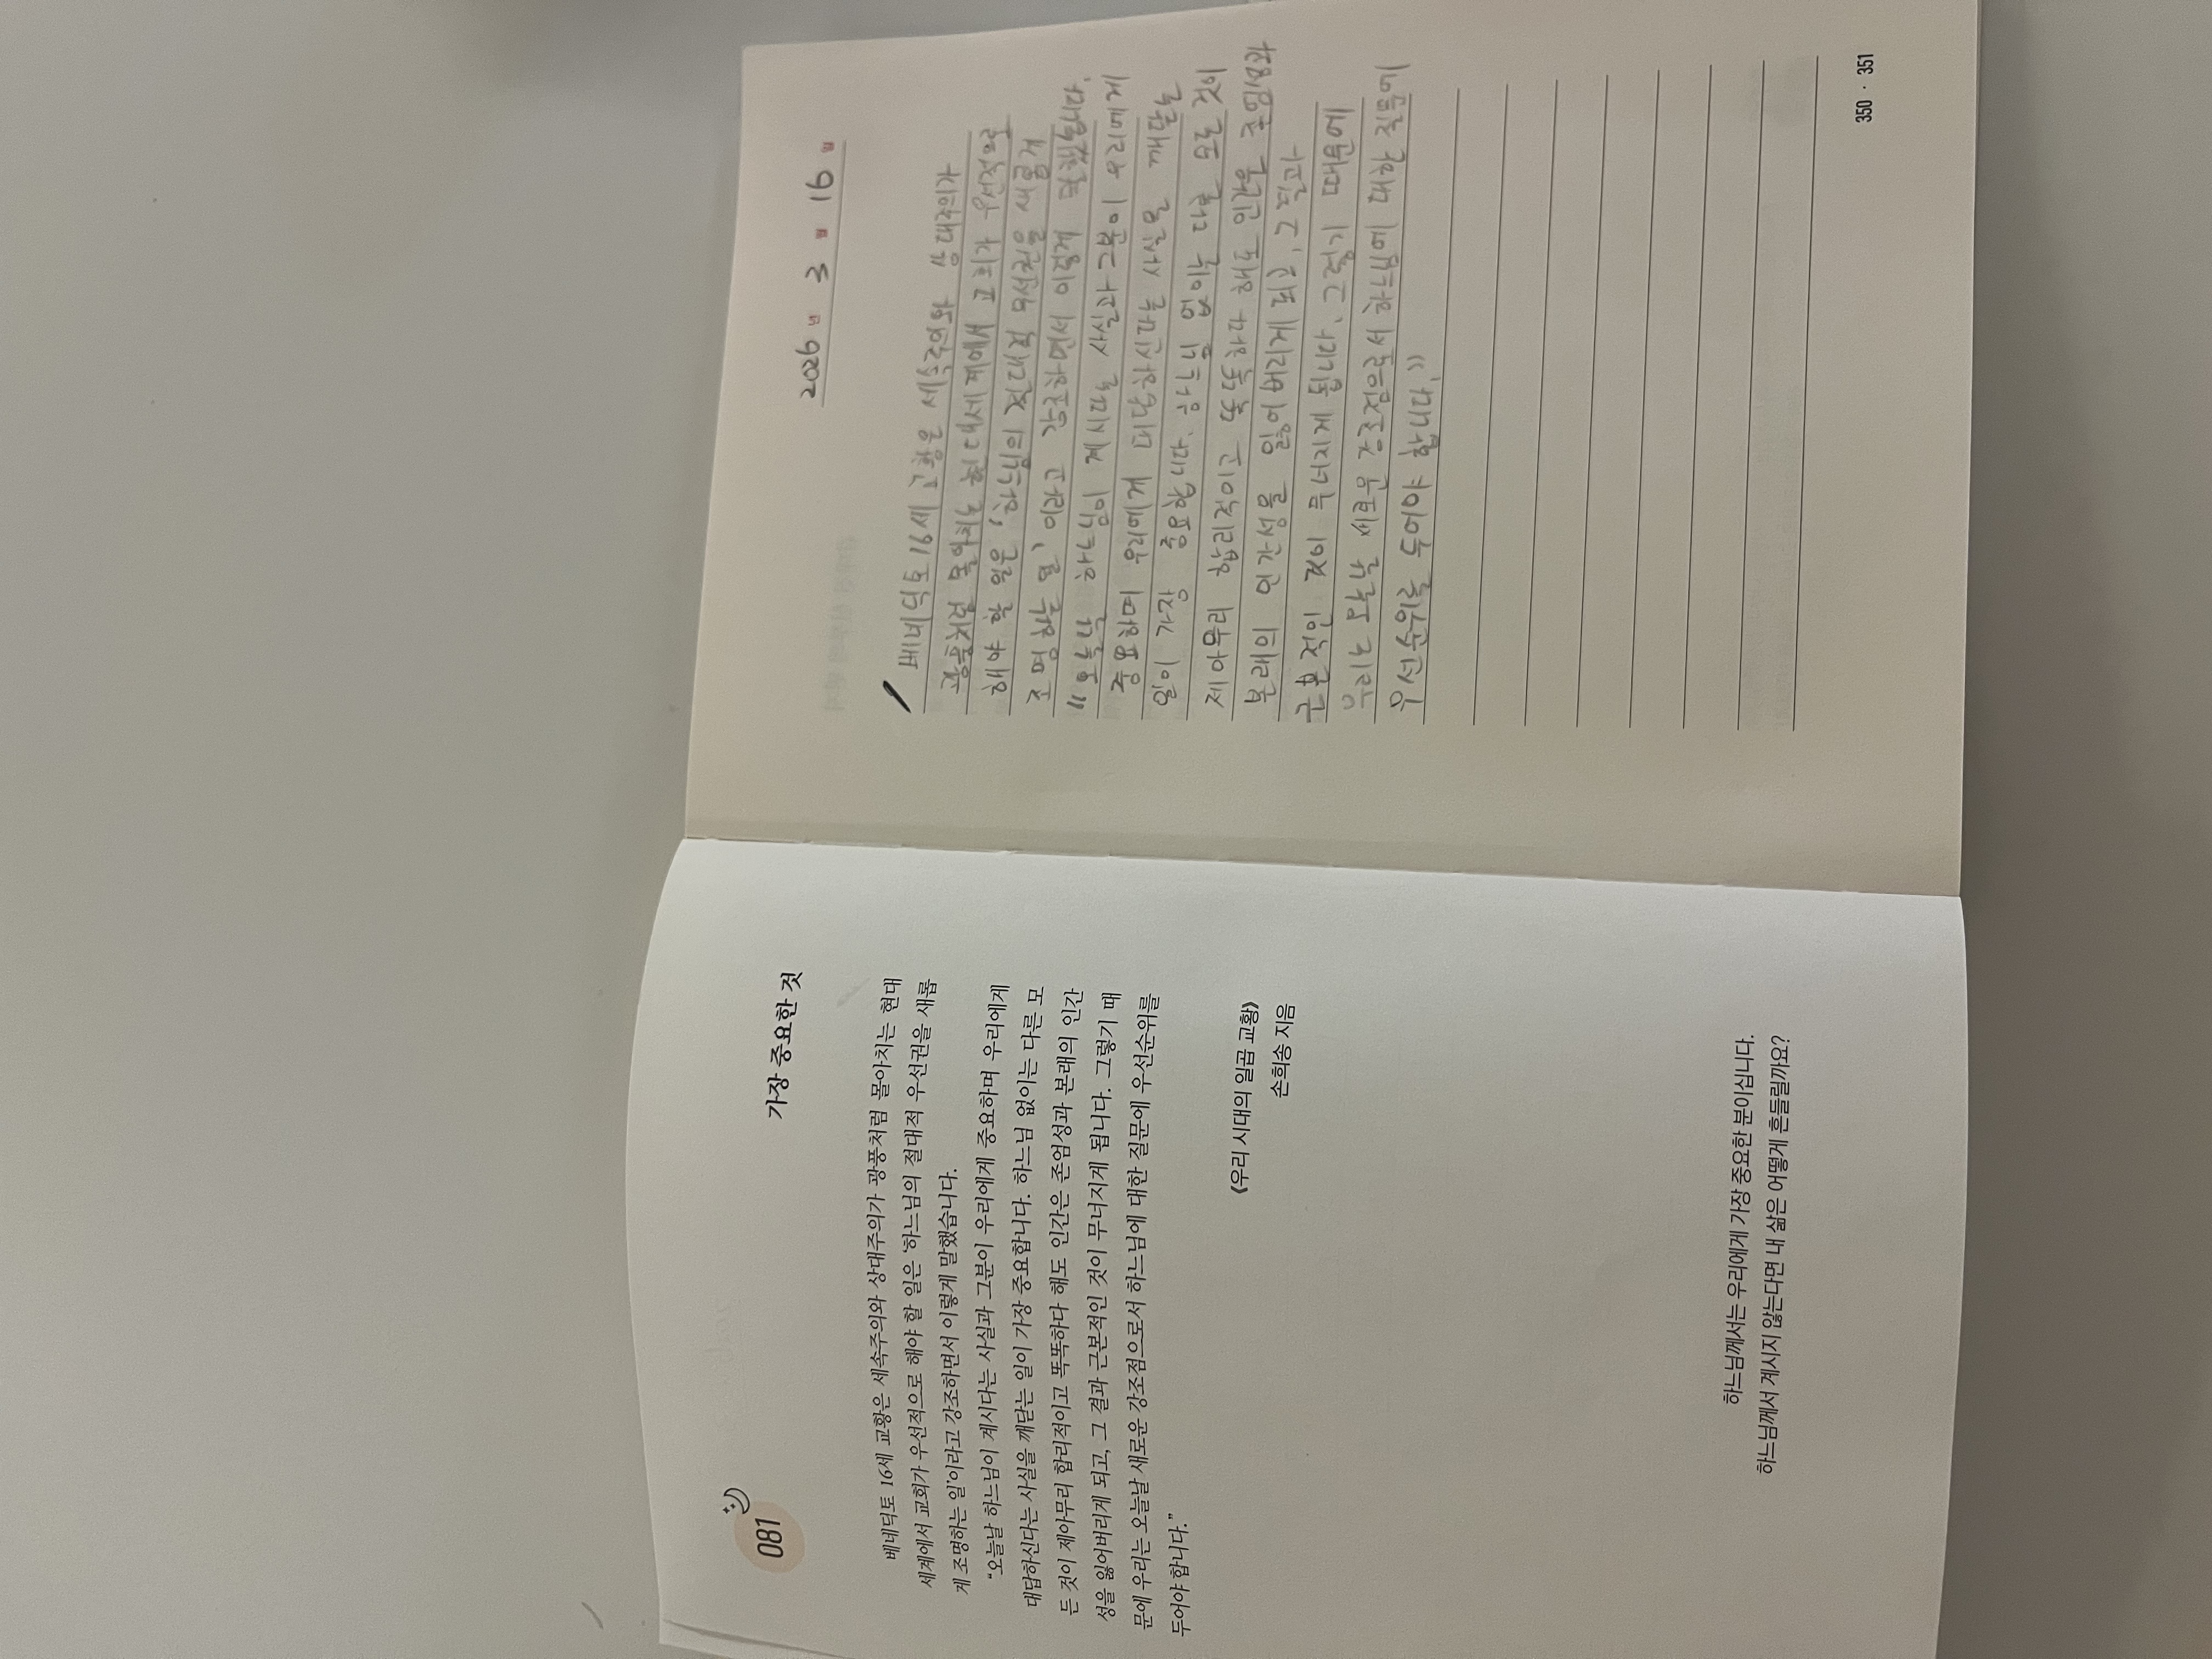 081
가장 중요한 것
베네딕토 16세 교황은 세속주의와 상대주의가 광풍처럼 몰아치는 현대
세계에서 교회가 우선적으로 해야 할 일은 ‘하느님의 절대적 우선권을 새롭
게 조명하는 일’이라고 강조하면서 이렇게 말했습니다.
“오늘날 하느님이 계시다는 사실과 그분이 우리에게 중요하며 우리에게
대답하신다는 사실을 깨닫는 일이 가장 중요합니다. 하느님 없이는 다른 모
든 것이 제아무리 합리적이고 똑똑하다 해도 인간은 존엄성과 본래의 인간
성을 잃어버리게 되고, 그 결과 근본적인 것이 무너지게 됩니다. 그렇기 때
문에 우리는 오늘날 새로운 강조점으로서 하느님에 대한 질문에 우선순위를
두어야 합니다.”
《우리 시대의 일곱 교황》
손희송 지음
하느님께서는 우리에게 가장 중요한 분이십니다.
하느님께서 계시지 않는다면 내 삶은 어떻게 흔들릴까요?
2026년 3월 16일
베네딕토 16세 교황은 세속주의와 상대주의가
광풍처럼 몰아치는 현대세계에서 교회가 우선적으로
해야 할 일은 '하느님의 절대적 우선권을 새롭게
조명하는 일' 이라고 강조하면서 이렇게 말했습니다.
"오늘날 하느님이 계시다는 사실과 그분이 우리에게
중요하며 우리에게 대답하신다는 사실을 깨닫는
일이 가장 중요합니다. 하느님 없이는 다른 모든 것이
제아무리 합리적이고 똑똑하다 해도 인간은 존엄성과
본래의 인간성을 잃어버리게 되고, 그 결과
근본적인 것이 무너지게 됩니다. 그렇기 때문에
우리는 오늘날 새로운 강조점으로서 하느님에 대한 질문에
우선순위를 두어야 합니다."
350 · 351